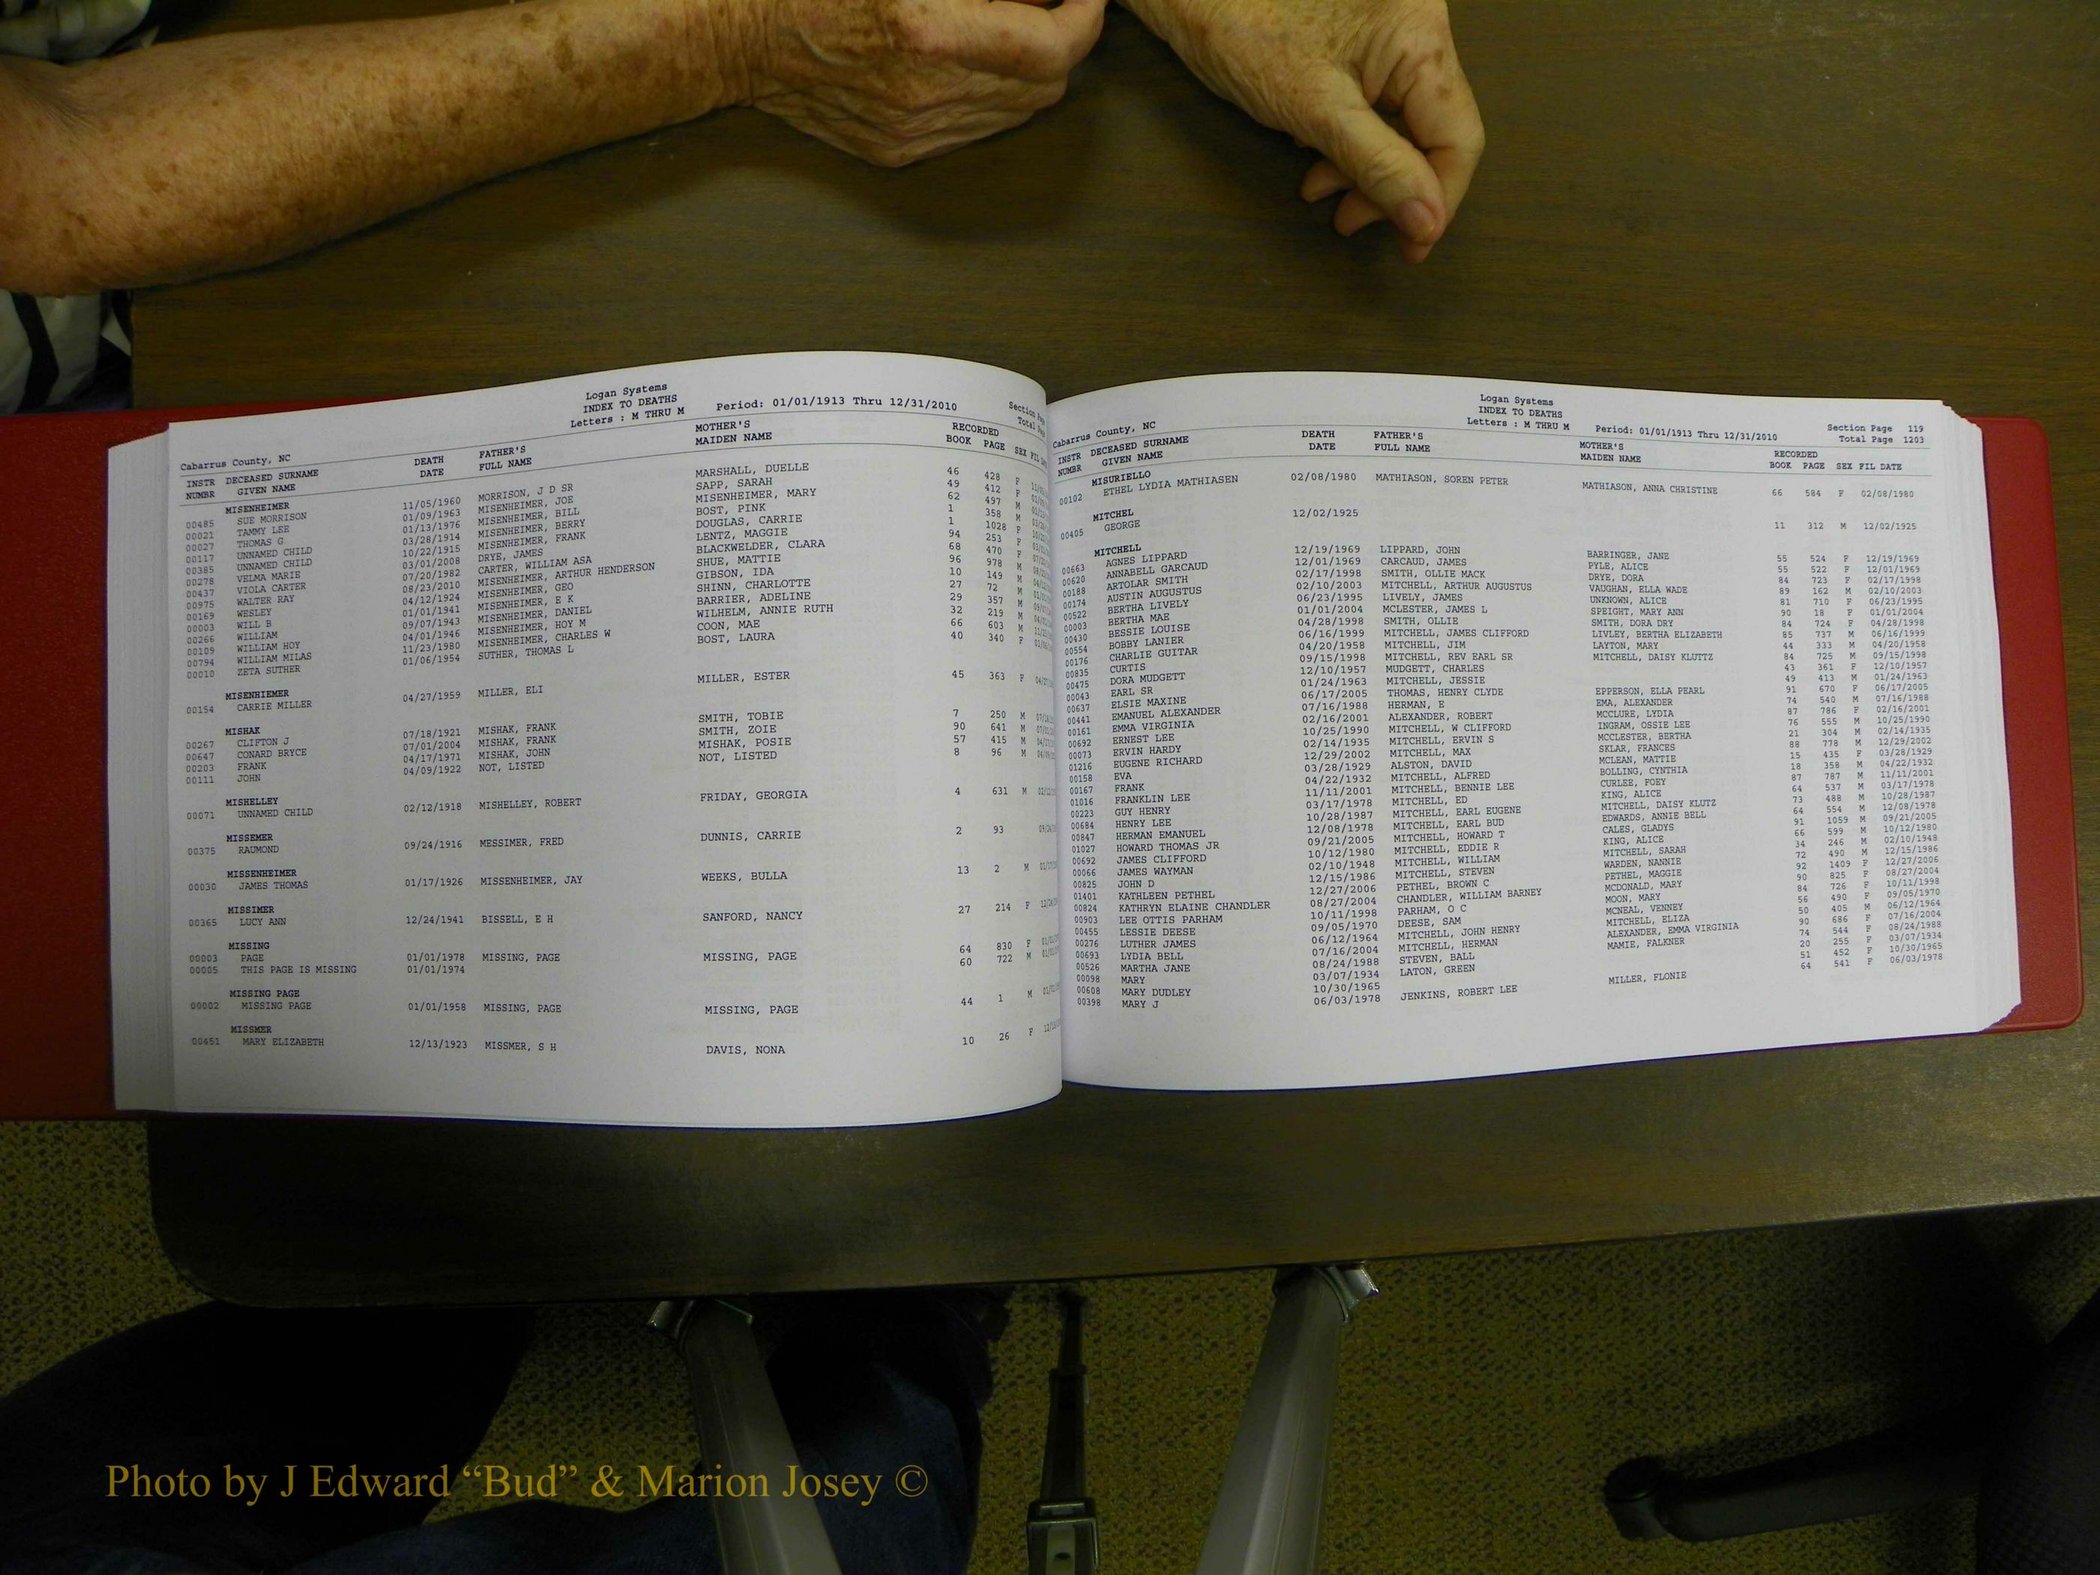 Logan Systems
INDEX TO DEATHS
Letters : M THRU M Period: 01/01/1913 Thru 12/31/2010
Cabarrus County, NC
INSTR DECEASED SURNAME DEATH FATHER'S MOTHER'S RECORDED
NUMBR GIVEN NAME DATE FULL NAME MAIDEN NAME BOOK PAGE SEX FIL
MISENHEIMER
00485 SUE MORRISON 11/05/1960 MORRISON, J D SR MARSHALL, DUELLE 46 428 F
00021 TAMMY LEE 01/09/1963 MISENHEIMER, JOE SAPP, SARAH 49 412 F
00027 THOMAS G 01/13/1976 MISENHEIMER, BILL MISENHEIMER, MARY 62 497 M
00117 UNNAMED CHILD 03/28/1914 MISENHEIMER, BERRY BOST, PINK 1 358 M
00385 UNNAMED CHILD 10/22/1915 MISENHEIMER, FRANK DOUGLAS, CARRIE 1 1028 F
00278 VELMA MARIE 03/01/2008 DRYE, JAMES LENTZ, MAGGIE 94 253 F
00437 VIOLA CARTER 07/20/1982 CARTER, WILLIAM ASA BLACKWELDER, CLARA 68 470 F
00975 WALTER RAY 08/23/2010 MISENHEIMER, ARTHUR HENDERSON SHUE, MATTIE 96 978 M
00169 WESLEY 04/12/1924 MISENHEIMER, GEO GIBSON, IDA 10 149 M
00003 WILL B 01/01/1941 MISENHEIMER, E K SHINN, CHARLOTTE 27 72 M
00266 WILLIAM 09/07/1943 MISENHEIMER, DANIEL BARRIER, ADELINE 29 357 M
00109 WILLIAM HOY 04/01/1946 MISENHEIMER, HOY M WILHELM, ANNIE RUTH 32 219 M
00794 WILLIAM MILAS 11/23/1980 MISENHEIMER, CHARLES W COON, MAE 66 603 M
00010 ZETA SUTHER 01/06/1954 SUTHER, THOMAS L BOST, LAURA 40 340 F
MISENHIEMER
00154 CARRIE MILLER 04/27/1959 MILLER, ELI MILLER, ESTER 45 363 F
MISHAK
00267 CLIFTON J 07/18/1921 MISHAK, FRANK SMITH, TOBIE 7 250 M
00647 CONARD BRYCE 07/01/2004 MISHAK, FRANK SMITH, ZOIE 90 641 M
00203 FRANK 04/17/1971 MISHAK, JOHN MISHAK, POSIE 57 415 M
00111 JOHN 04/09/1922 NOT, LISTED NOT, LISTED 8 96 M
MISHELLEY
00071 UNNAMED CHILD 02/12/1918 MISHELLEY, ROBERT FRIDAY, GEORGIA 4 631 M
MISSEMER
00375 RAUMOND 09/24/1916 MESSIMER, FRED DUNNIS, CARRIE 2 93
MISSENHEIMER
00030 JAMES THOMAS 01/17/1926 MISSENHEIMER, JAY WEEKS, BULLA 13 2 M
MISSIMER
00365 LUCY ANN 12/24/1941 BISSELL, E H SANFORD, NANCY 27 214 F
MISSING
00003 PAGE 01/01/1978 MISSING, PAGE MISSING, PAGE 64 830 F
00005 THIS PAGE IS MISSING 01/01/1974 60 722 M
MISSING PAGE
00002 MISSING PAGE 01/01/1958 MISSING, PAGE MISSING, PAGE 44 1 M
MISSMER
00451 MARY ELIZABETH 12/13/1923 MISSMER, S H DAVIS, NONA 10 26 F
Logan Systems
INDEX TO DEATHS
Letters : M THRU M Period: 01/01/1913 Thru 12/31/2010
Section Page 119
Total Page 1203
Cabarrus County, NC
INSTR DECEASED SURNAME DEATH FATHER'S MOTHER'S RECORDED
NUMBR GIVEN NAME DATE FULL NAME MAIDEN NAME BOOK PAGE SEX FIL DATE
MISURIELLO
00102 ETHEL LYDIA MATHIASEN 02/08/1980 MATHIASON, SOREN PETER MATHIASON, ANNA CHRISTINE 66 584 F 02/08/1980
MITCHEL
00405 GEORGE 12/02/1925 11 312 M 12/02/1925
MITCHELL
00663 AGNES LIPPARD 12/19/1969 LIPPARD, JOHN BARRINGER, JANE 55 524 F 12/19/1969
00620 ANNABELL GARCAUD 12/01/1969 CARCAUD, JAMES PYLE, ALICE 55 522 F 12/01/1969
00188 ARTOLAR SMITH 02/17/1998 SMITH, OLLIE MACK DRYE, DORA 84 723 F 02/17/1998
00174 AUSTIN AUGUSTUS 02/10/2003 MITCHELL, ARTHUR AUGUSTUS VAUGHAN, ELLA WADE 89 162 M 02/10/2003
00522 BERTHA LIVELY 06/23/1995 LIVELY, JAMES UNKNOWN, ALICE 81 710 F 06/23/1995
00003 BERTHA MAE 01/01/2004 MCLESTER, JAMES L SPEIGHT, MARY ANN 90 18 F 01/01/2004
00430 BESSIE LOUISE 04/28/1998 SMITH, OLLIE SMITH, DORA DRY 84 724 F 04/28/1998
00554 BOBBY LANIER 06/16/1999 MITCHELL, JAMES CLIFFORD LIVLEY, BERTHA ELIZABETH 85 737 M 06/16/1999
00176 CHARLIE GUITAR 04/20/1958 MITCHELL, JIM LAYTON, MARY 44 333 M 04/20/1958
00835 CURTIS 09/15/1998 MITCHELL, REV EARL SR MITCHELL, DAISY KLUTTZ 84 725 M 09/15/1998
00475 DORA MUDGETT 12/10/1957 MUDGETT, CHARLES 43 361 F 12/10/1957
00043 EARL SR 01/24/1963 MITCHELL, JESSIE 49 413 M 01/24/1963
00637 ELSIE MAXINE 06/17/2005 THOMAS, HENRY CLYDE EPPERSON, ELLA PEARL 91 670 F 06/17/2005
00441 EMANUEL ALEXANDER 07/16/1988 HERMAN, E EMA, ALEXANDER 74 540 M 07/16/1988
00161 EMMA VIRGINIA 02/16/2001 ALEXANDER, ROBERT MCCLURE, LYDIA 87 786 F 02/16/2001
00692 ERNEST LEE 10/25/1990 MITCHELL, W CLIFFORD INGRAM, OSSIE LEE 76 555 M 10/25/1990
00073 ERVIN HARDY 02/14/1935 MITCHELL, ERVIN S MCCLESTER, BERTHA 21 304 M 02/14/1935
01216 EUGENE RICHARD 12/29/2002 MITCHELL, MAX SKLAR, FRANCES 88 778 M 12/29/2002
00158 EVA 03/28/1929 ALSTON, DAVID MCLEAN, MATTIE 15 435 F 03/28/1929
00167 FRANK 04/22/1932 MITCHELL, ALFRED BOLLING, CYNTHIA 18 358 M 04/22/1932
01016 FRANKLIN LEE 11/11/2001 MITCHELL, BENNIE LEE CURLEE, FOBY 87 787 M 11/11/2001
00223 GUY HENRY 03/17/1978 MITCHELL, ED KING, ALICE 64 537 M 03/17/1978
00684 HENRY LEE 10/28/1987 MITCHELL, EARL EUGENE MITCHELL, DAISY KLUTZ 73 488 M 10/28/1987
00847 HERMAN EMANUEL 12/08/1978 MITCHELL, EARL BUD EDWARDS, ANNIE BELL 64 554 M 12/08/1978
01027 HOWARD THOMAS JR 09/21/2005 MITCHELL, HOWARD T CALES, GLADYS 91 1059 M 09/21/2005
00692 JAMES CLIFFORD 10/12/1980 MITCHELL, EDDIE R KING, ALICE 66 599 M 10/12/1980
00066 JAMES WAYMAN 02/10/1948 MITCHELL, WILLIAM MITCHELL, SARAH 34 246 M 02/10/1948
00825 JOHN D 12/15/1986 MITCHELL, STEVEN WARDEN, NANNIE 72 490 M 12/15/1986
01401 KATHLEEN PETHEL 12/27/2006 PETHEL, BROWN C PETHEL, MAGGIE 92 1409 F 12/27/2006
00824 KATHRYN ELAINE CHANDLER 08/27/2004 CHANDLER, WILLIAM BARNEY MCDONALD, MARY 90 825 F 08/27/2004
00903 LEE OTTIS PARHAM 10/11/1998 PARHAM, O C MOON, MARY 84 726 F 10/11/1998
00455 LESSIE DEESE 09/05/1970 DEESE, SAM MCNEAL, VENNEY 56 490 F 09/05/1970
00276 LUTHER JAMES 06/12/1964 MITCHELL, JOHN HENRY MITCHELL, ELIZA 50 405 M 06/12/1964
00693 LYDIA BELL 07/16/2004 MITCHELL, HERMAN ALEXANDER, EMMA VIRGINIA 90 686 F 07/16/2004
00526 MARTHA JANE 08/24/1988 STEVEN, BALL MAMIE, FALKNER 74 544 F 08/24/1988
00098 MARY 03/07/1934 LATON, GREEN 20 255 F 03/07/1934
00608 MARY DUDLEY 10/30/1965 51 452 F 10/30/1965
00398 MARY J 06/03/1978 JENKINS, ROBERT LEE MILLER, FLONIE 64 541 F 06/03/1978
Photo by J Edward “Bud” & Marion Josey ©